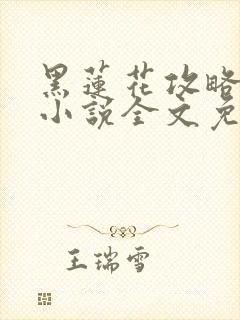 黑蓮花攻略
小說全文免
王瑞雪